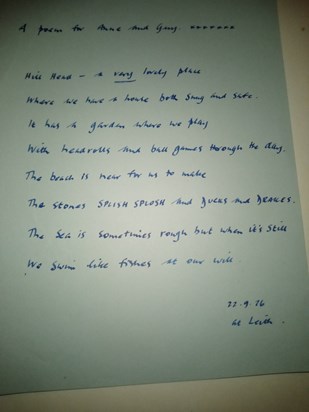 A poem for Anne and Gary. xxxxxxx
Hill Head - a very lovely place
Where we have a house both snug and safe.
It has a garden where we play
With headrolls and ball games through the day.
The beach is near for us to make
The stones SPLISH SPLOSH and Ducks and Drakes.
The Sea is sometimes rough but when it's still
We swim like fishes at our will.
22.9.76